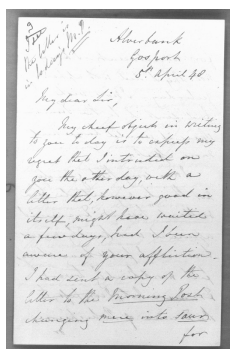 My letter is
in to day's M. P.
Alverbank
Gosport
5th April 48
My dear Sir,
My chief object in writing
to you to day is to express my
regret that I intruded on
you the other day, with a
letter that, however good in
itself, might have waited
a few days, had I been
aware of your affliction.
I had sent a copy of the
letter to the Morning Post
changing mere into
for